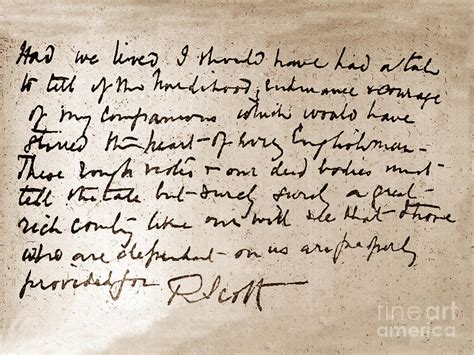 Had we lived I should have had a tale
to tell of the hardihood, endurance & courage
of my companions which would have
stirred the heart of every Englishman -
These rough notes & our dead bodies must
tell the tale but surely surely a great
rich country like ours will see that those
who are dependent on us are properly
provided for R Scott
fine art
america